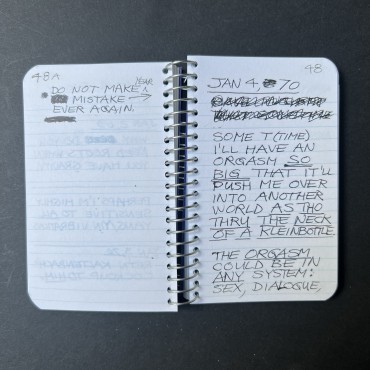 48A
YEAR
DO NOT MAKE ^
MISTAKE →
EVER AGAIN.
48
JAN 4, 70
SOME T(TIME)
I'LL HAVE AN
ORGASM SO
BIG THAT IT'LL
PUSH ME OVER
INTO ANOTHER
WORLD AS THO
THRU THE NECK
OF A KLEINBOTTLE.
THE ORGASM
COULD BE IN
ANY SYSTEM:
SEX, DIALOGUE,